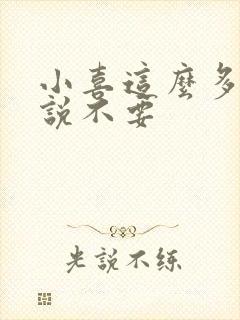 小喜這麼多
說不要
光說不练